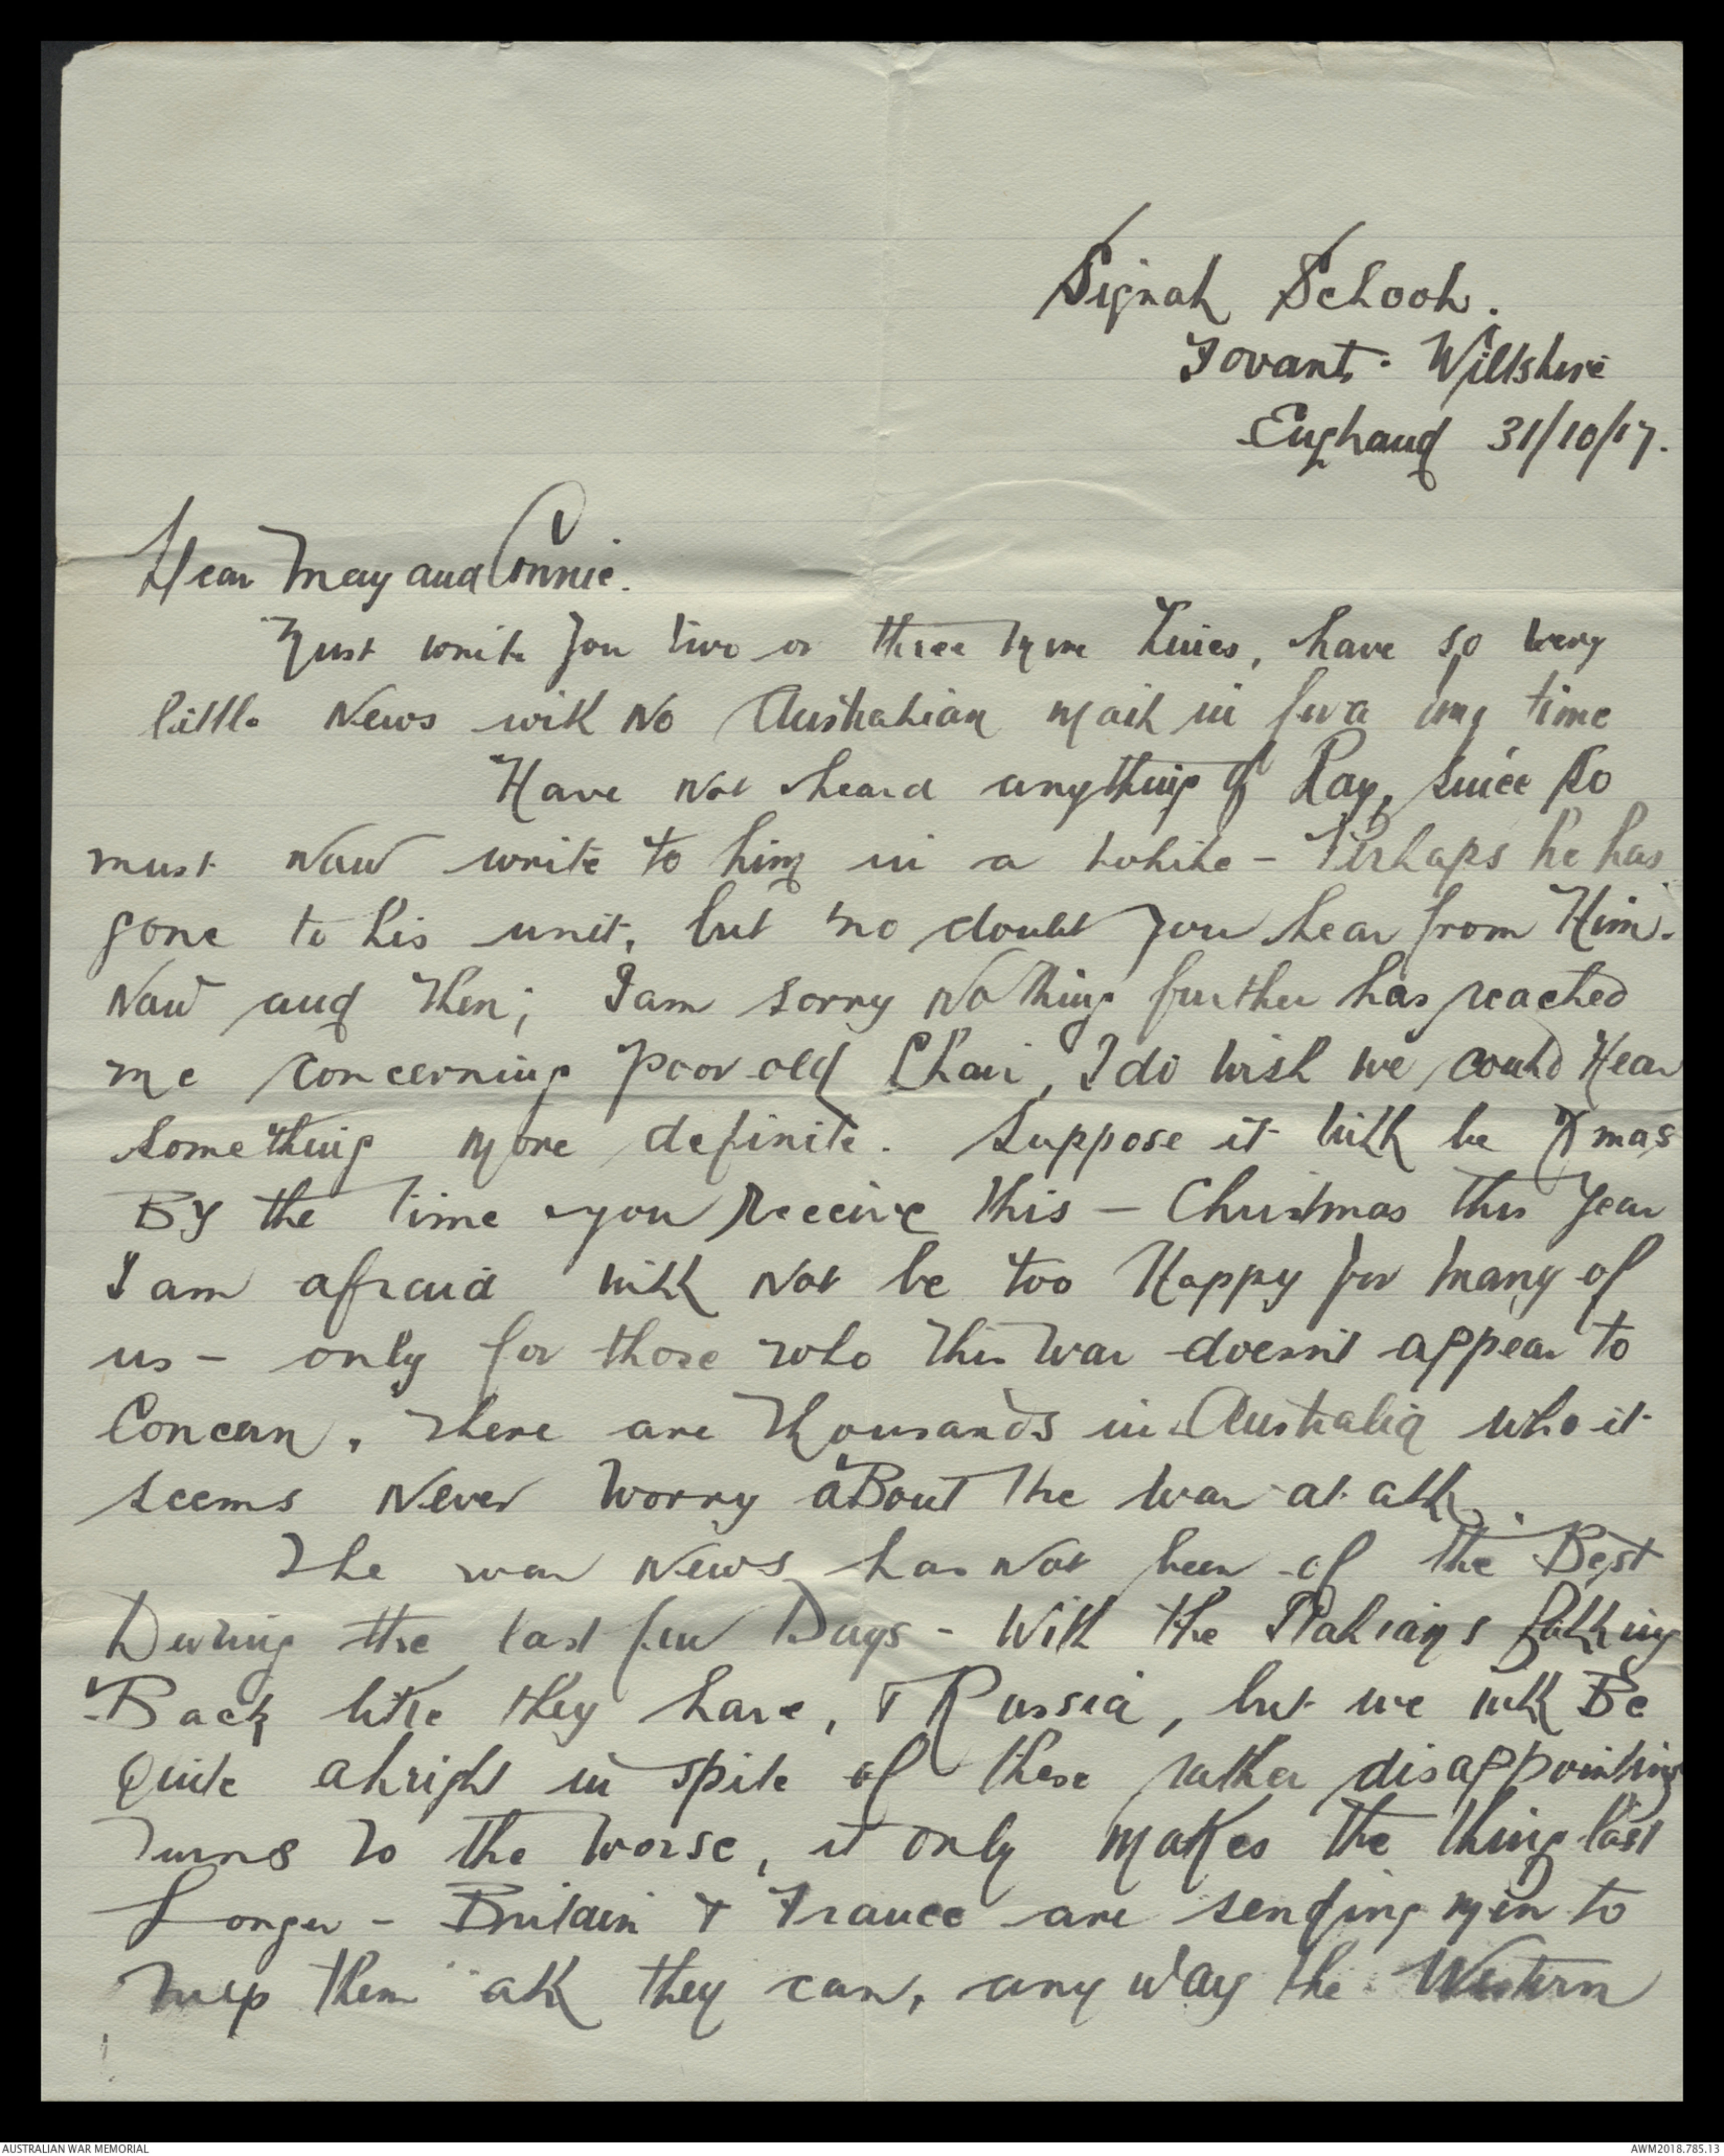 Signal School.
Fovant. Wiltshire
England 31/10/17.
Dear May and Connie.
Just write you two or three more lines, have so very
little News with No Australian mail in for a long time
Have Not heard anything of Ray, since so
must Now write to him in a while - Perhaps he has
gone to his unit, but no doubt you hear from Him.
Now and then; I am sorry Nothing further has reached
me concerning poor old, I do wish we could Hear
something more definite. Suppose it will be Xmas
By the time you Receive this - Christmas this Year
I am afraid will Not be too Happy for many of
us - only for those who this war doesn't appear to
Concern, there are Thousands in Australia who it
seems Never Worry aBout The war at all.
The war News has Not been of the Best
During the last few Days - With the Italians falling
Back like they have, & Russia, but we will Be
Quite alright in spite of these rather disappointing
Turns to the Worse, it only makes the thing last
Longer - Britain & France are sending men to
help them all they can, any way the Western
AUSTRALIAN WAR MEMORIAL
AWM2018.785.13